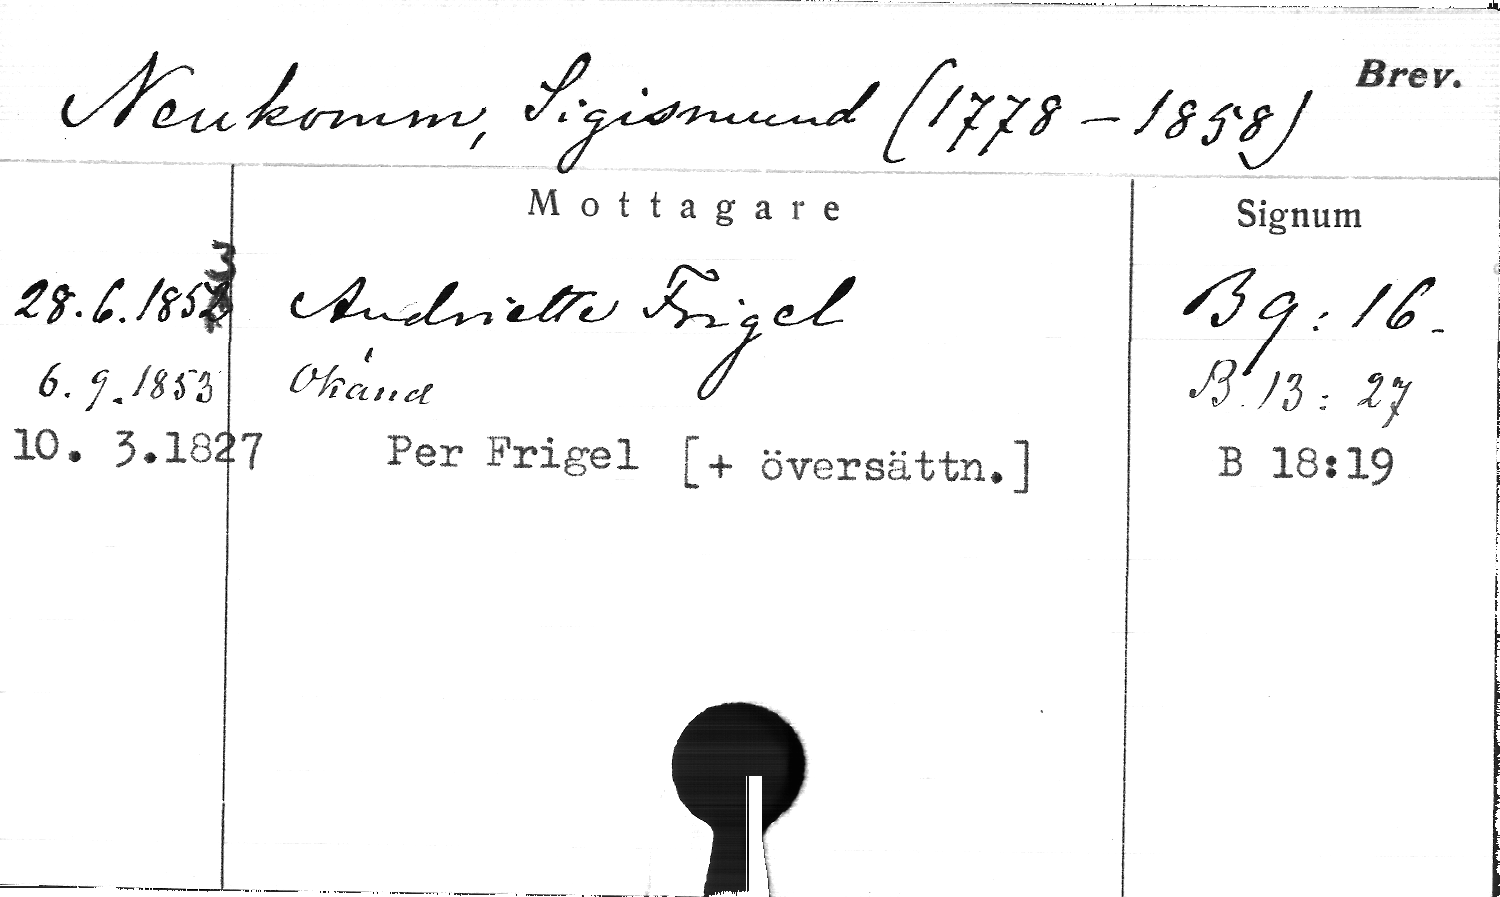 Brev.
Neukomm, Sigismund (1778 – 1858)
Mottagare Signum
28.6.1853 Andriette Frigel B 9:16.
6. 9. 1853 Okänd B. 13: 27
10. 3.1827 Per Frigel [+ översättn.] B 18:19